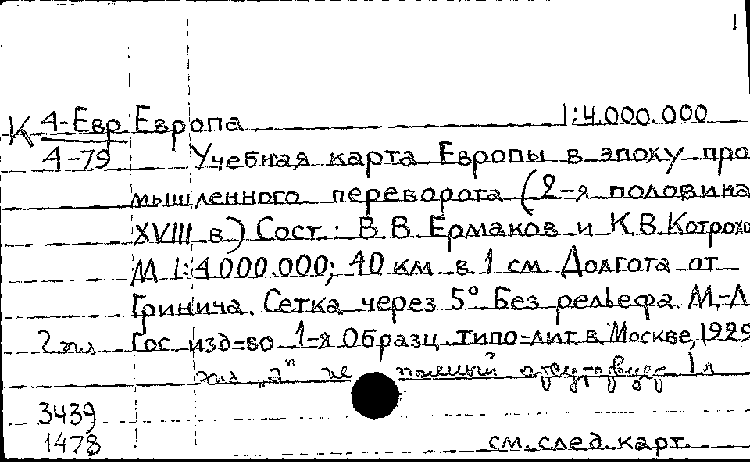 1
К 4-Евр Европа 1:4.000.000
4-79 Учебная карта Европы в эпоху про
мышленного переворота (2-я половина
XVIII в.) Сост.: В.В. Ермаков и К.В. Котрохо
М 1:4.000.000; 40 км в 1 см Долгота от
Гринича. Сетка через 5° Без рельефа М.-Л
2 экз Гос. изд-во 1-я Образц. типо-лит. в Москве, 1929
экз „а" не полный 1 л
3439
1478 см. след. карт.